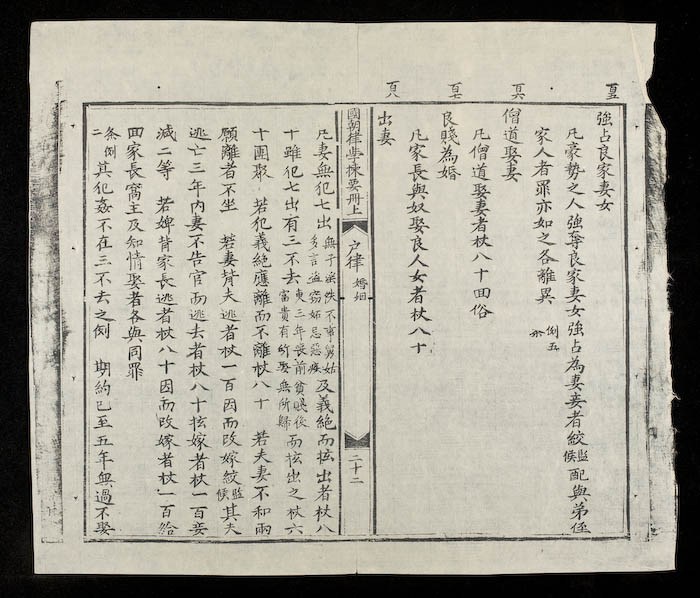 頁五
強占良家妻女
凡豪勢之人強奪良家妻女強占為妻妾者絞監候配與弟侄
家人者罪亦如之各離異 例五
頁六
僧道娶妻
凡僧道娶妻者杖八十回俗
頁七
良賤為婚
凡家長與奴娶良人女者杖八十
頁八
出妻
國朝律學揀要册上 戶律 婚姻 二十二
凡妻無犯七出無子淫佚不事舅姑多言盗窃妬忌惡疾及義絕而擅出者杖八
十雖犯七出有三不去更三年喪前貧賤後富貴有所娶無所歸而擅出之杖六
十團聚 若犯義絕應離而不離杖八十 若夫妻不和兩
願離者不坐 若妻背夫逃者杖一百因而改嫁絞監候其夫
逃亡三年內妻不告官而逃去者杖八十擅嫁者杖一百妾
減二等 若婢背家長逃者杖八十因而改嫁者杖一百給
回家長窩主及知情娶者各與同罪
条例二其犯姦不在三不去之例 期約已至五年無過不娶